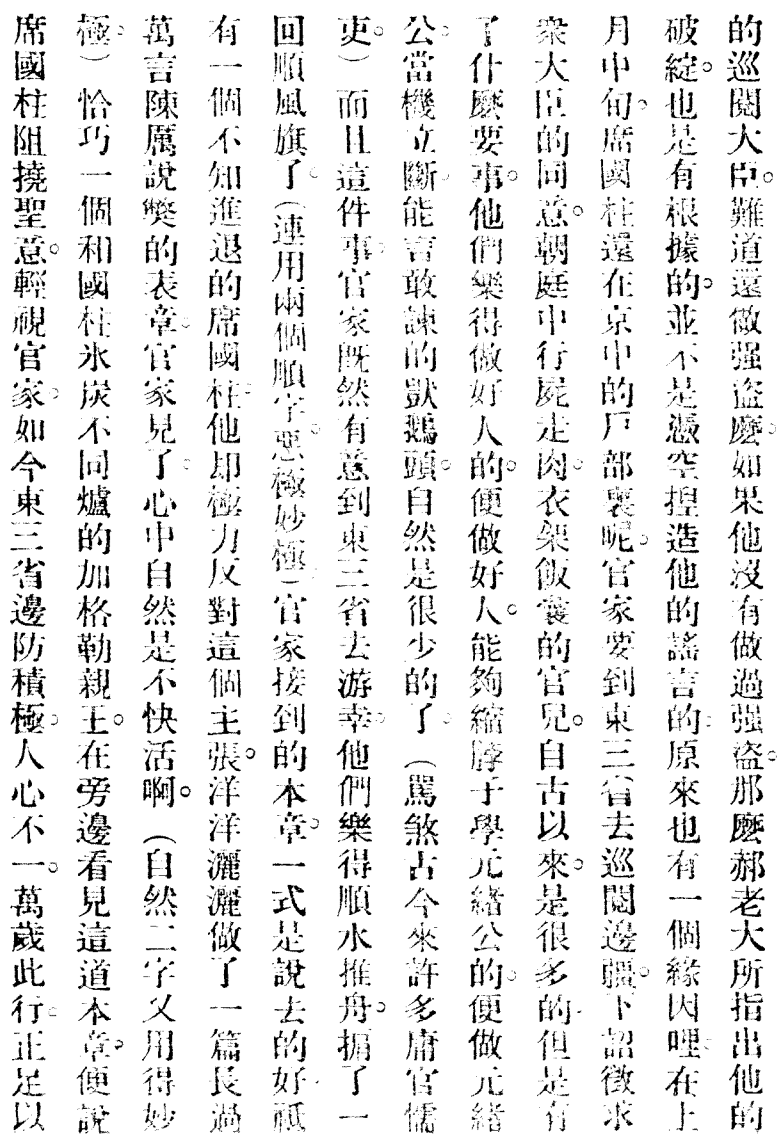 的巡閱大臣。難道還做强盜麽。如果他沒有做過强盜。那麽郝老大所指出他的
破綻。也是有根據的。並不是憑空揑造他的謠言的。原來也有一個緣因哩。在上
月中旬。席國柱還在京中的戶部裏呢。官家要到東三省去巡閱邊疆。下詔徵求
衆大臣的同意。朝庭中行屍走肉。衣架飯囊的官兒。自古以來。是很多的。但是有
了什麽要事。他們樂得做好人的。便做好人。能夠縮脖子學元緒公的。便做元緒
公。當機立斷。能言敢諫的獃鵝頭。自然是很少的了。（罵煞古今來許多庸官懦
吏。）而且這件事。官家旣然有意到東三省去游幸。他們樂得順水推舟。掮了一
回順風旗了。（連用兩個順字。惡極妙極）官家接到的本章。一式是說去的好。祇
有一個不知進退的席國柱。他却極力反對這個主張。洋洋灑灑做了一篇長過
萬言陳厲說弊的表章。官家見了。心中自然是不快活啊。（自然二字又用得妙
極。）恰巧一個和國柱氷炭不同爐的加格勒親王。在旁邊看見這道本章。便說
席國柱阻撓聖意。輕視官家。如今東三省邊防積極。人心不一。萬歲此行。正足以